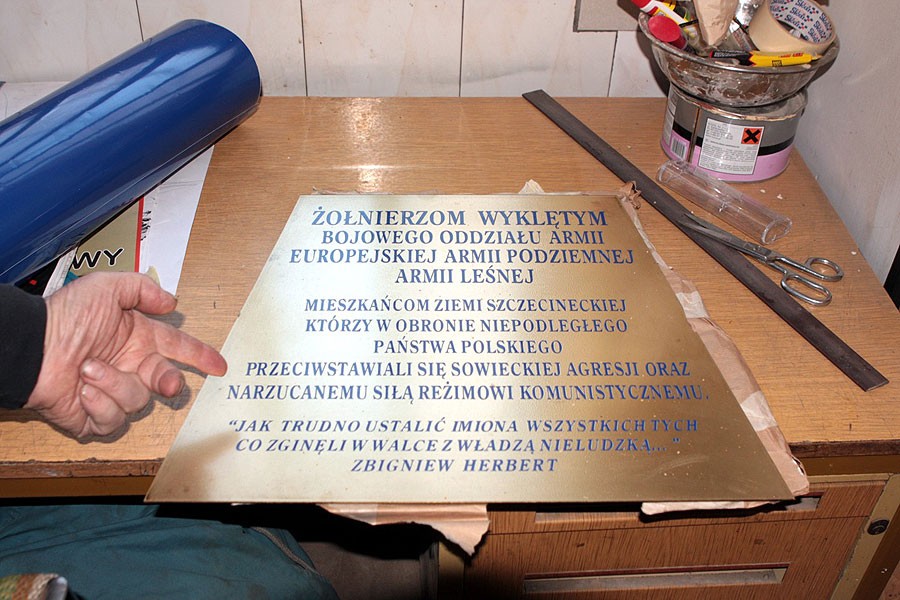 ŻOŁNIERZOM WYKLĘTYM
BOJOWEGO ODDZIAŁU ARMII
EUROPEJSKIEJ ARMII PODZIEMNEJ
ARMII LEŚNEJ
MIESZKAŃCOM ZIEMI SZCZECINECKIEJ
KTÓRZY W OBRONIE NIEPODLEGŁEGO
PAŃSTWA POLSKIEGO
PRZECIWSTAWIALI SIĘ SOWIECKIEJ AGRESJI ORAZ
NARZUCANEMU SIŁĄ REŻIMOWI KOMUNISTYCZNEMU.
“JAK TRUDNO USTALIĆ IMIONA WSZYSTKICH TYCH
CO ZGINĘLI W WALCE Z WŁADZĄ NIELUDZKĄ...”
ZBIGNIEW HERBERT
WY
Stick